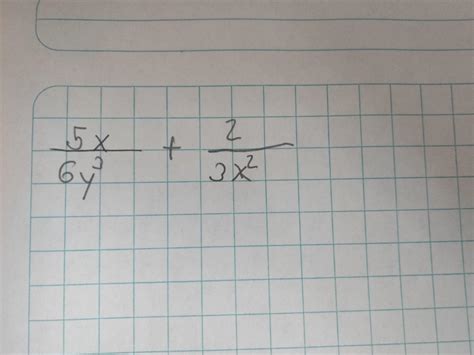 5x/6y³ + 2/3x²